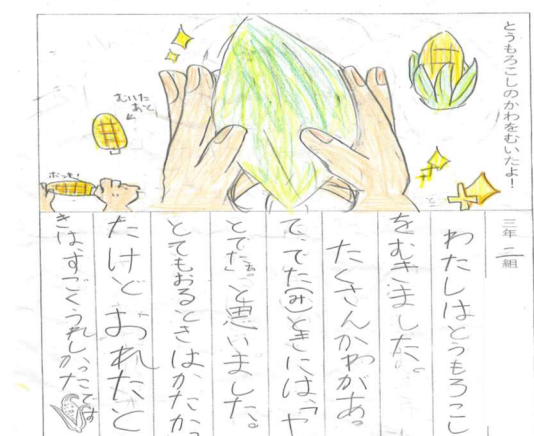 とうもろこしのかわをむいたよ！
三年二組
むいた
あと
ポッキ！
わたしはとうもろこし
をむきました。
たくさんかわがあっ
て、でた(み)ときには、「ヤッ
とでたぁ。」と思いました。
とてもおるときはかたかっ
たけどおれたと
きは、すごくうれしかったです